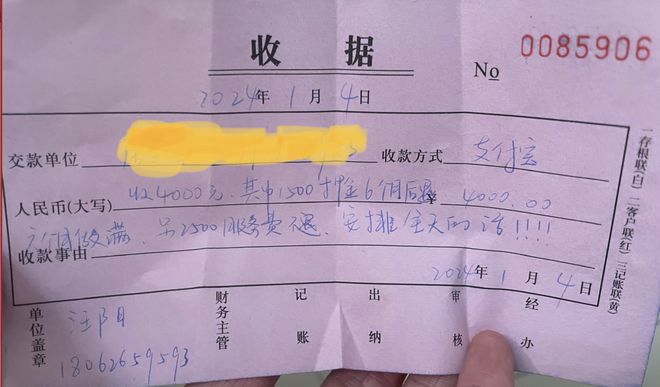 收据
No 0085906
2024年1月4日
交款单位 收款方式 支付宝
人民币(大写) 收4000元,其中1500押金6个月后退 ¥ 4000.00
六个月做满、另2500服务费不退、安排全天的活!!!!
收款事由
2024年1月4日
单位盖章 汪阳 18062659593 财务主管 记账 出纳 审核 经办
一存根联(白) 二客户联(红) 三记账联(黄)